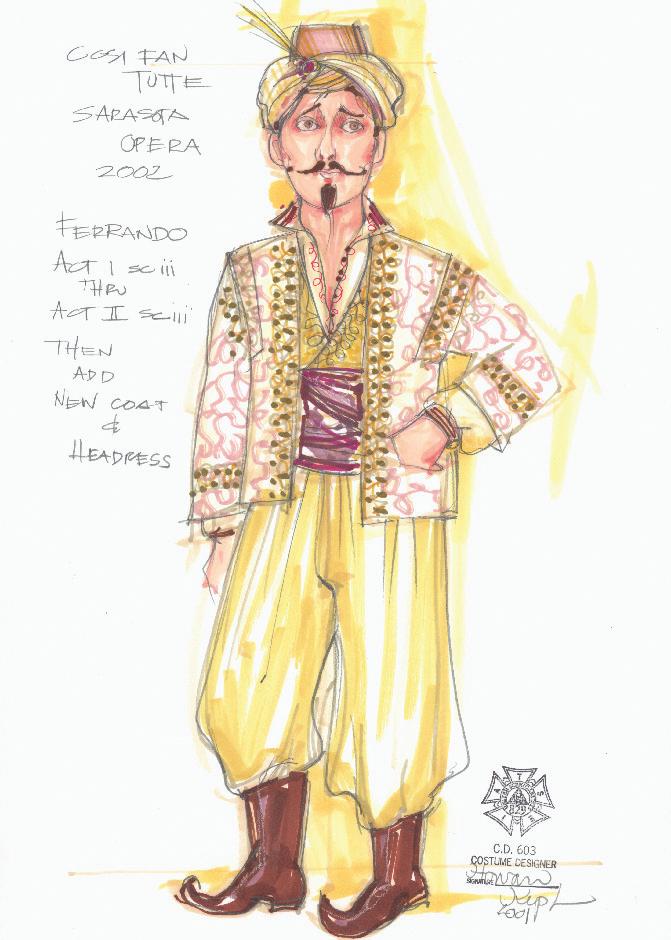 COSI FAN
TUTTE
SARASOTA
OPERA
2002
FERRANDO
ACT I SC iii
THRU
ACT II SC iii
THEN
ADD
NEW COAT
&
HEADRESS
C.D. 603
COSTUME DESIGNER
SIGNATURE
2001